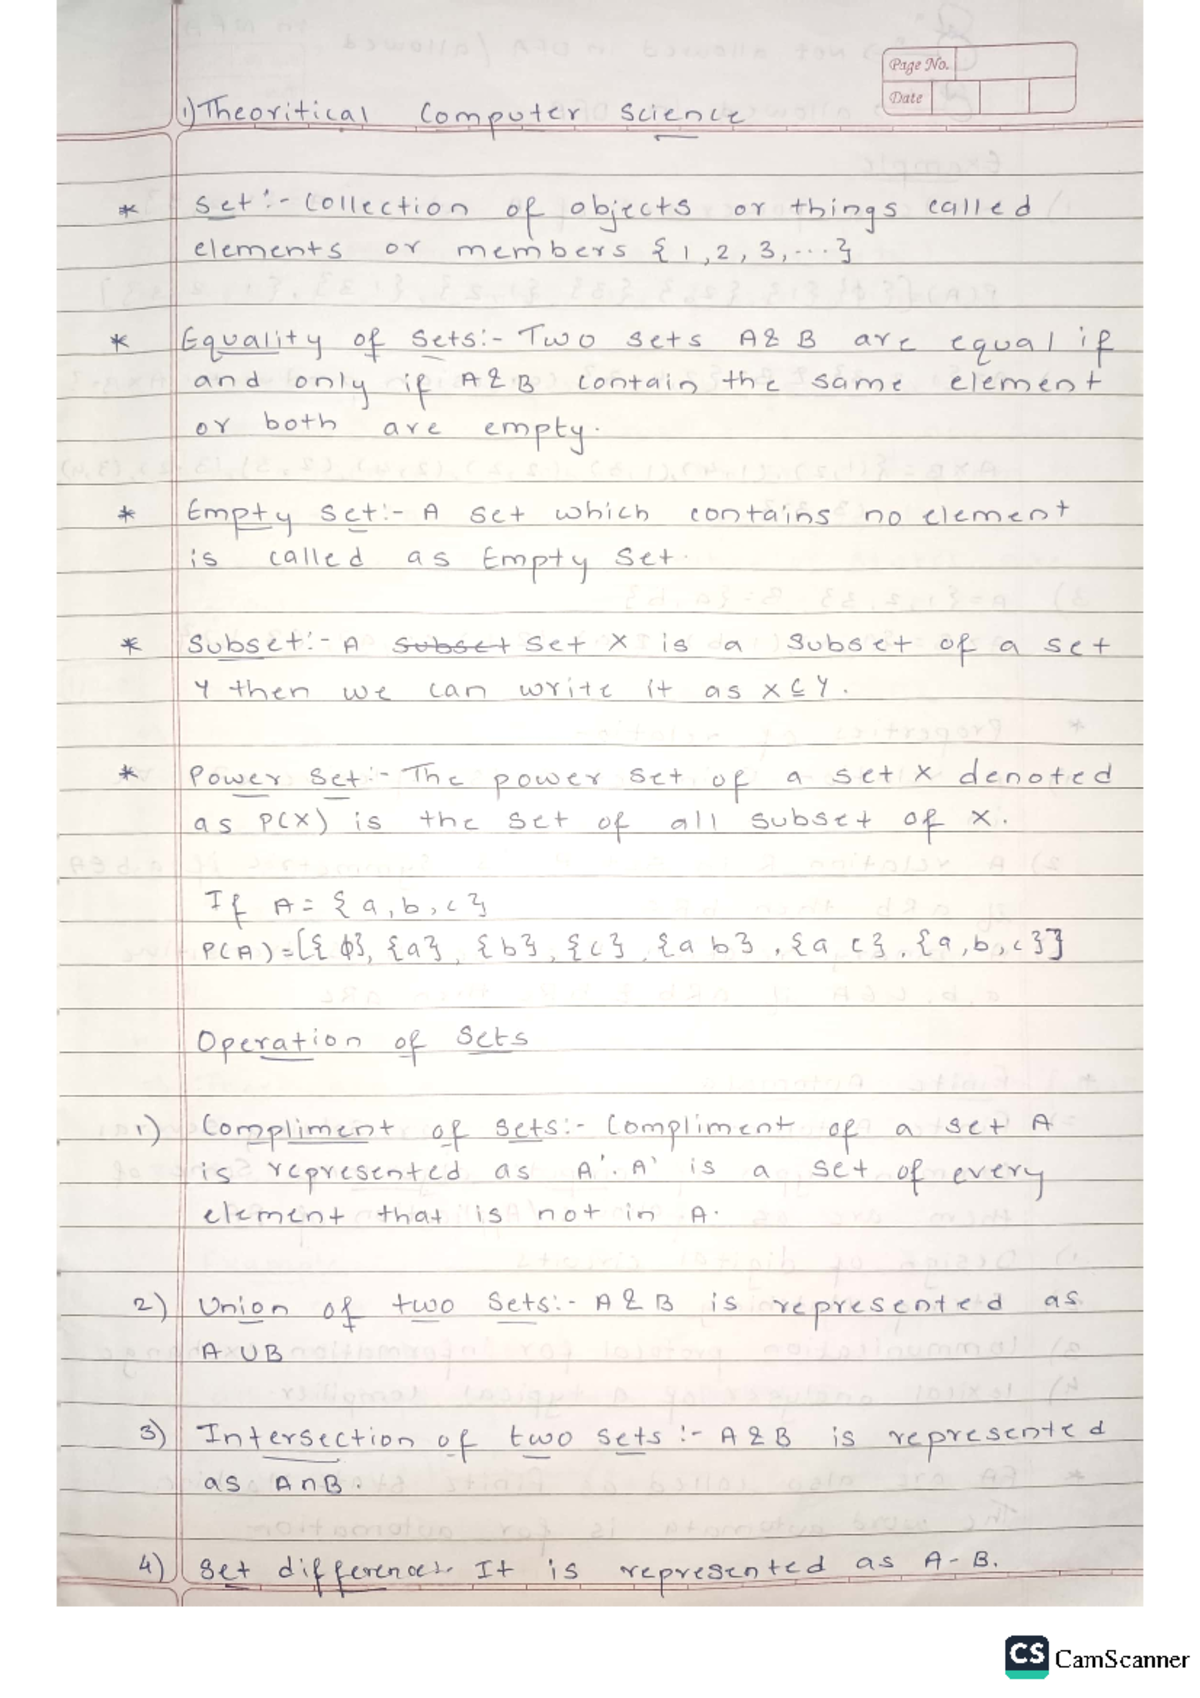 Page No.
Date
1) Theoritical Computer Science
* Set :- Collection of objects or things called
elements or members {1,2,3,...}
* Equality of Sets:- Two sets A & B are equal if
and only if A & B contain the same element
or both are empty.
* Empty Set:- A set which contains no element
is called as Empty Set.
* Subset:- A subset set X is a subset of a set
Y then we can write it as X ⊆ Y.
* Power Set:- The power set of a set X denoted
as P(X) is the set of all subset of X.
If A = {a, b, c}
P(A) = [{ϕ}, {a}, {b}, {c}, {a b}, {a c}, {a,b,c}]
Operation of Sets
1) Compliment of Sets:- Compliment of a set A
is represented as A'. A' is a set of every
element that is not in A.
2) Union of two Sets:- A & B is represented as
A ∪ B
3) Intersection of two sets :- A & B is represented
as A∩B.
4) Set difference:- It is represented as A - B.
CS CamScanner